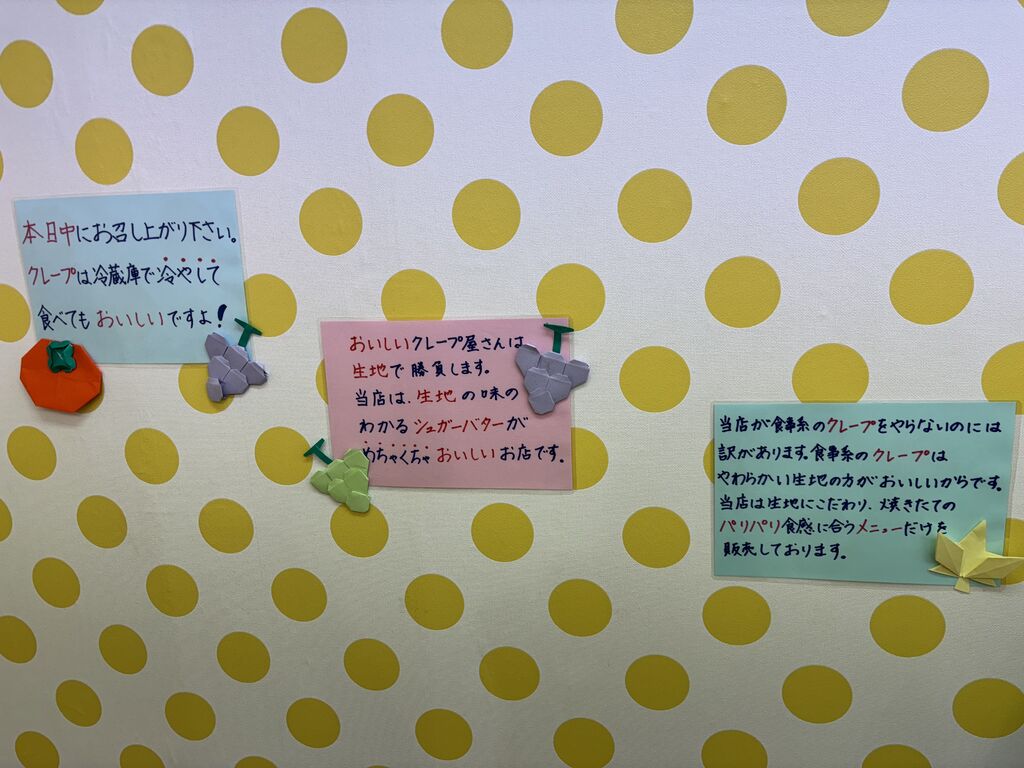 本日中にお召し上がり下さい。
クレープは冷蔵庫で冷やして
食べても おいしいですよ!
おいしいクレープ屋さんは
生地で勝負します。
当店は、生地の味の
わかるシュガーバターが
めちゃくちゃ おいしいお店です。
当店が食事系のクレープをやらないのには
訳があります。食事系のクレープは
やわらかい生地の方がおいしいからです。
当店は生地にこだわり、焼きたての
パリパリ食感に合うメニューだけを
販売しております。